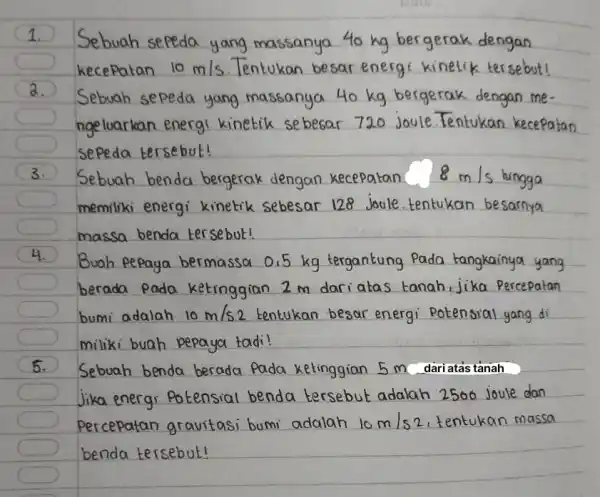 1. Sebuah sepeda yang massanya 40 kg bergerak dengan
kecepatan 10 m/s. Tentukan besar energi kinetik tersebut!
2. Sebuah sepeda yang massanya 40 kg bergerak dengan me-
ngeluarkan energi kinetik sebesar 720 joule. Tentukan kecepatan
sepeda tersebut!
3. Sebuah benda bergerak dengan kecepatan 8 m/s hingga
memiliki energi kinetik sebesar 128 joule. tentukan besarnya
massa benda tersebut!
4. Buah pepaya bermassa 0,5 kg tergantung pada tangkainya yang
berada pada ketinggian 2 m dari atas tanah, jika percepatan
bumi adalah 10 m/s2 tentukan besar energi potensial yang di
miliki buah pepaya tadi!
5. Sebuah benda berada pada ketinggian 5 m dari atas tanah
jika energi potensial benda tersebut adalah 2500 joule dan
percepatan gravitasi bumi adalah 10 m/s2, tentukan massa
benda tersebut!